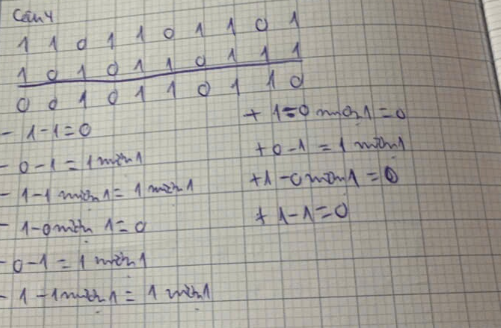 Câu 4
1 1 0 1 1 0 1 1 0 1
1 0 1 0 1 1 0 1 1 1
0 0 1 0 1 1 0 1 1 0
- 1-1=0
- 0-1=1 mượn 1
- 1-1 mượn 1 = 1 mượn 1
- 1-0 mượn 1=0
- 0-1 = 1 mượn 1
- 1-1 mượn 1 = 1 mượn 1
+ 1=0 mượn 1=0
+ 0-1 = 1 mượn 1
+1-0 mượn 1 = 0
+ 1-1=0